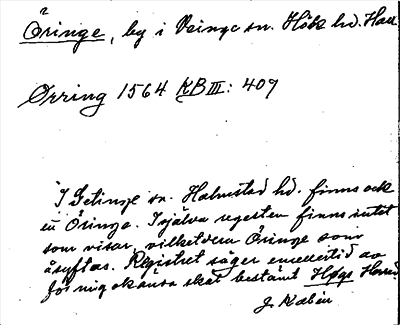 Öringe, by i Veinge sn. Höks hd. Hall
Örring 1564 KB III: 409
I Getinge sn. Halmstad hd. finns ock
en Öringe. I själva regesten finns intet
som visar, vilketdera Öringe som
åsyftas. Registret säger emellertid av
för mig okända skäl bestämt Högs Härad.
J. Kalén